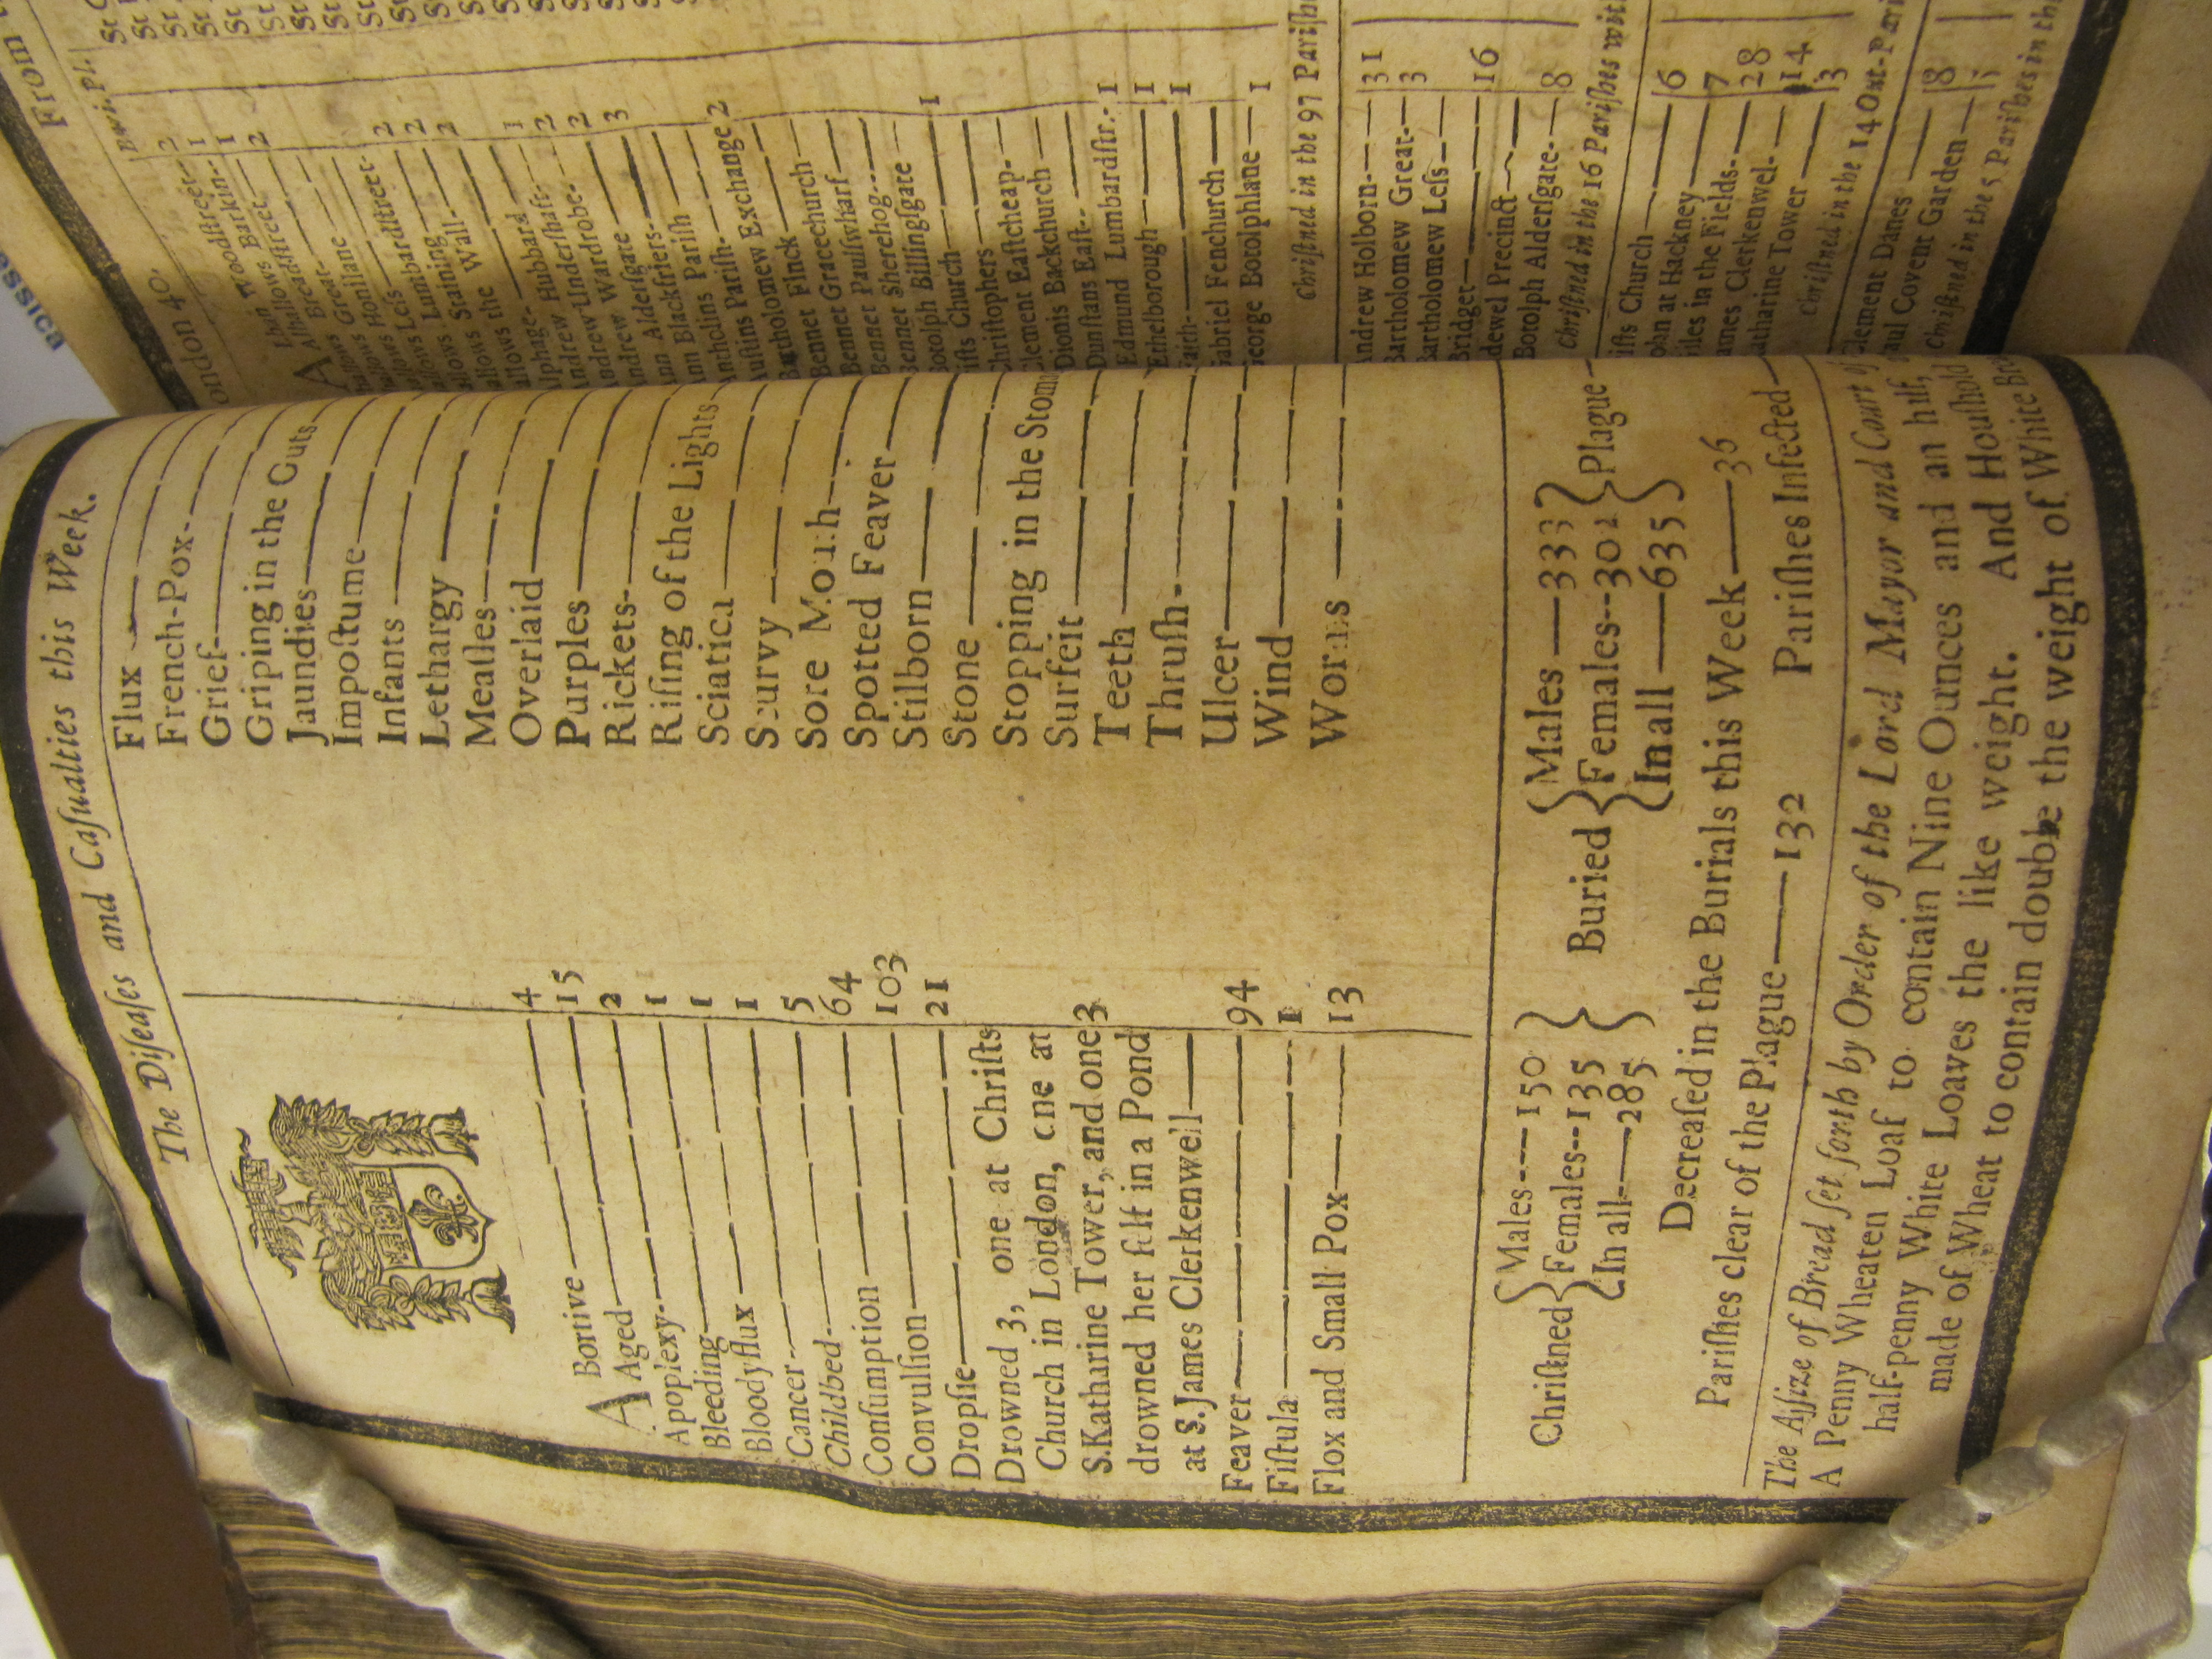 The Diſeaſes and Caſualties this Week.
ABortive 4
Aged 15
Apoplexy 2
Bleeding 1
Bloody flux 1
Cancer 1
Childbed 5
Conſumption 64
Convulſion 103
Dropſie 21
Drowned 3, one at Chriſts
Church in London, one at
S. Katharine Tower, and one 3
drowned her ſelf in a Pond
at S. James Clerkenwell
Feaver 94
Fiſtula 1
Flox and Small Pox 13
Flux
French-Pox
Grief
Griping in the Guts
Jaundies
Impoſtume
Infants
Lethargy
Meaſles
Overlaid
Purples
Rickets
Riſing of the Lights
Sciatica
Scurvy
Sore Mouth
Spotted Feaver
Stilborn
Stone
Stopping in the Stom
Surfeit
Teeth
Thruſh
Ulcer
Wind
Worms
Chriſtned { Males 150 Females 135 In all 285 }
Buried { Males 333 Females 302 In all 635 } Plague
Decreaſed in the Burials this Week 36
Pariſhes clear of the Plague 132 Pariſhes Infected
The Aſſize of Bread ſet forth by Order of the Lord Mayor and Court of
A Penny Wheaten Loaf to contain Nine Ounces and an half,
half-penny White Loaves the like weight. And Houſhold
made of Wheat to contain double the weight of White Br
From
ondon 40.
Alban Woodſtreet 2
Alhallows Barkin 1
Alhallows Breadſtreet 1
allows Great 2
allows Honilane
allows Leſs
allows Lumbardſtreet 2
allows Staining 2
allows the Wall 2
Alphage
Andrew Hubbard 1
Andrew Underſhaft 2
Andrew Wardrobe 2
Ann Alderſgate 3
Ann Blackfriers
Antholins Pariſh
Auſtins Pariſh
Bartholomew Exchange 2
Bennet Finck
Bennet Gracechurch
Bennet Paulſwharf
Bennet Sherehog
Botolph Billingſgate
iſts Church 1
hriſtophers
lement Eaſtcheap
Dionis Backchurch
Dunſtans Eaſt
Edmund Lumbardſtr. 1
Ethelborough 1
aith 1
abriel Fenchurch
eorge Botolphlane 1
Chriſtned in the 97 Pariſh
ndrew Holborn 31
Bartholomew Great 3
artholomew Leſs
Bridget 16
dewel Precinct
Botolph Alderſgate 8
Chriſtned in the 16 Pariſhes wit
iſts Church 6
ohn at Hackney 7
iles in the Fields 28
ames Clerkenwel 14
atharine Tower 3
Chriſtned in the 14 Out-Pari
lement Danes 8
aul Covent Garden
Chriſtned in the 5 Pariſhes in th